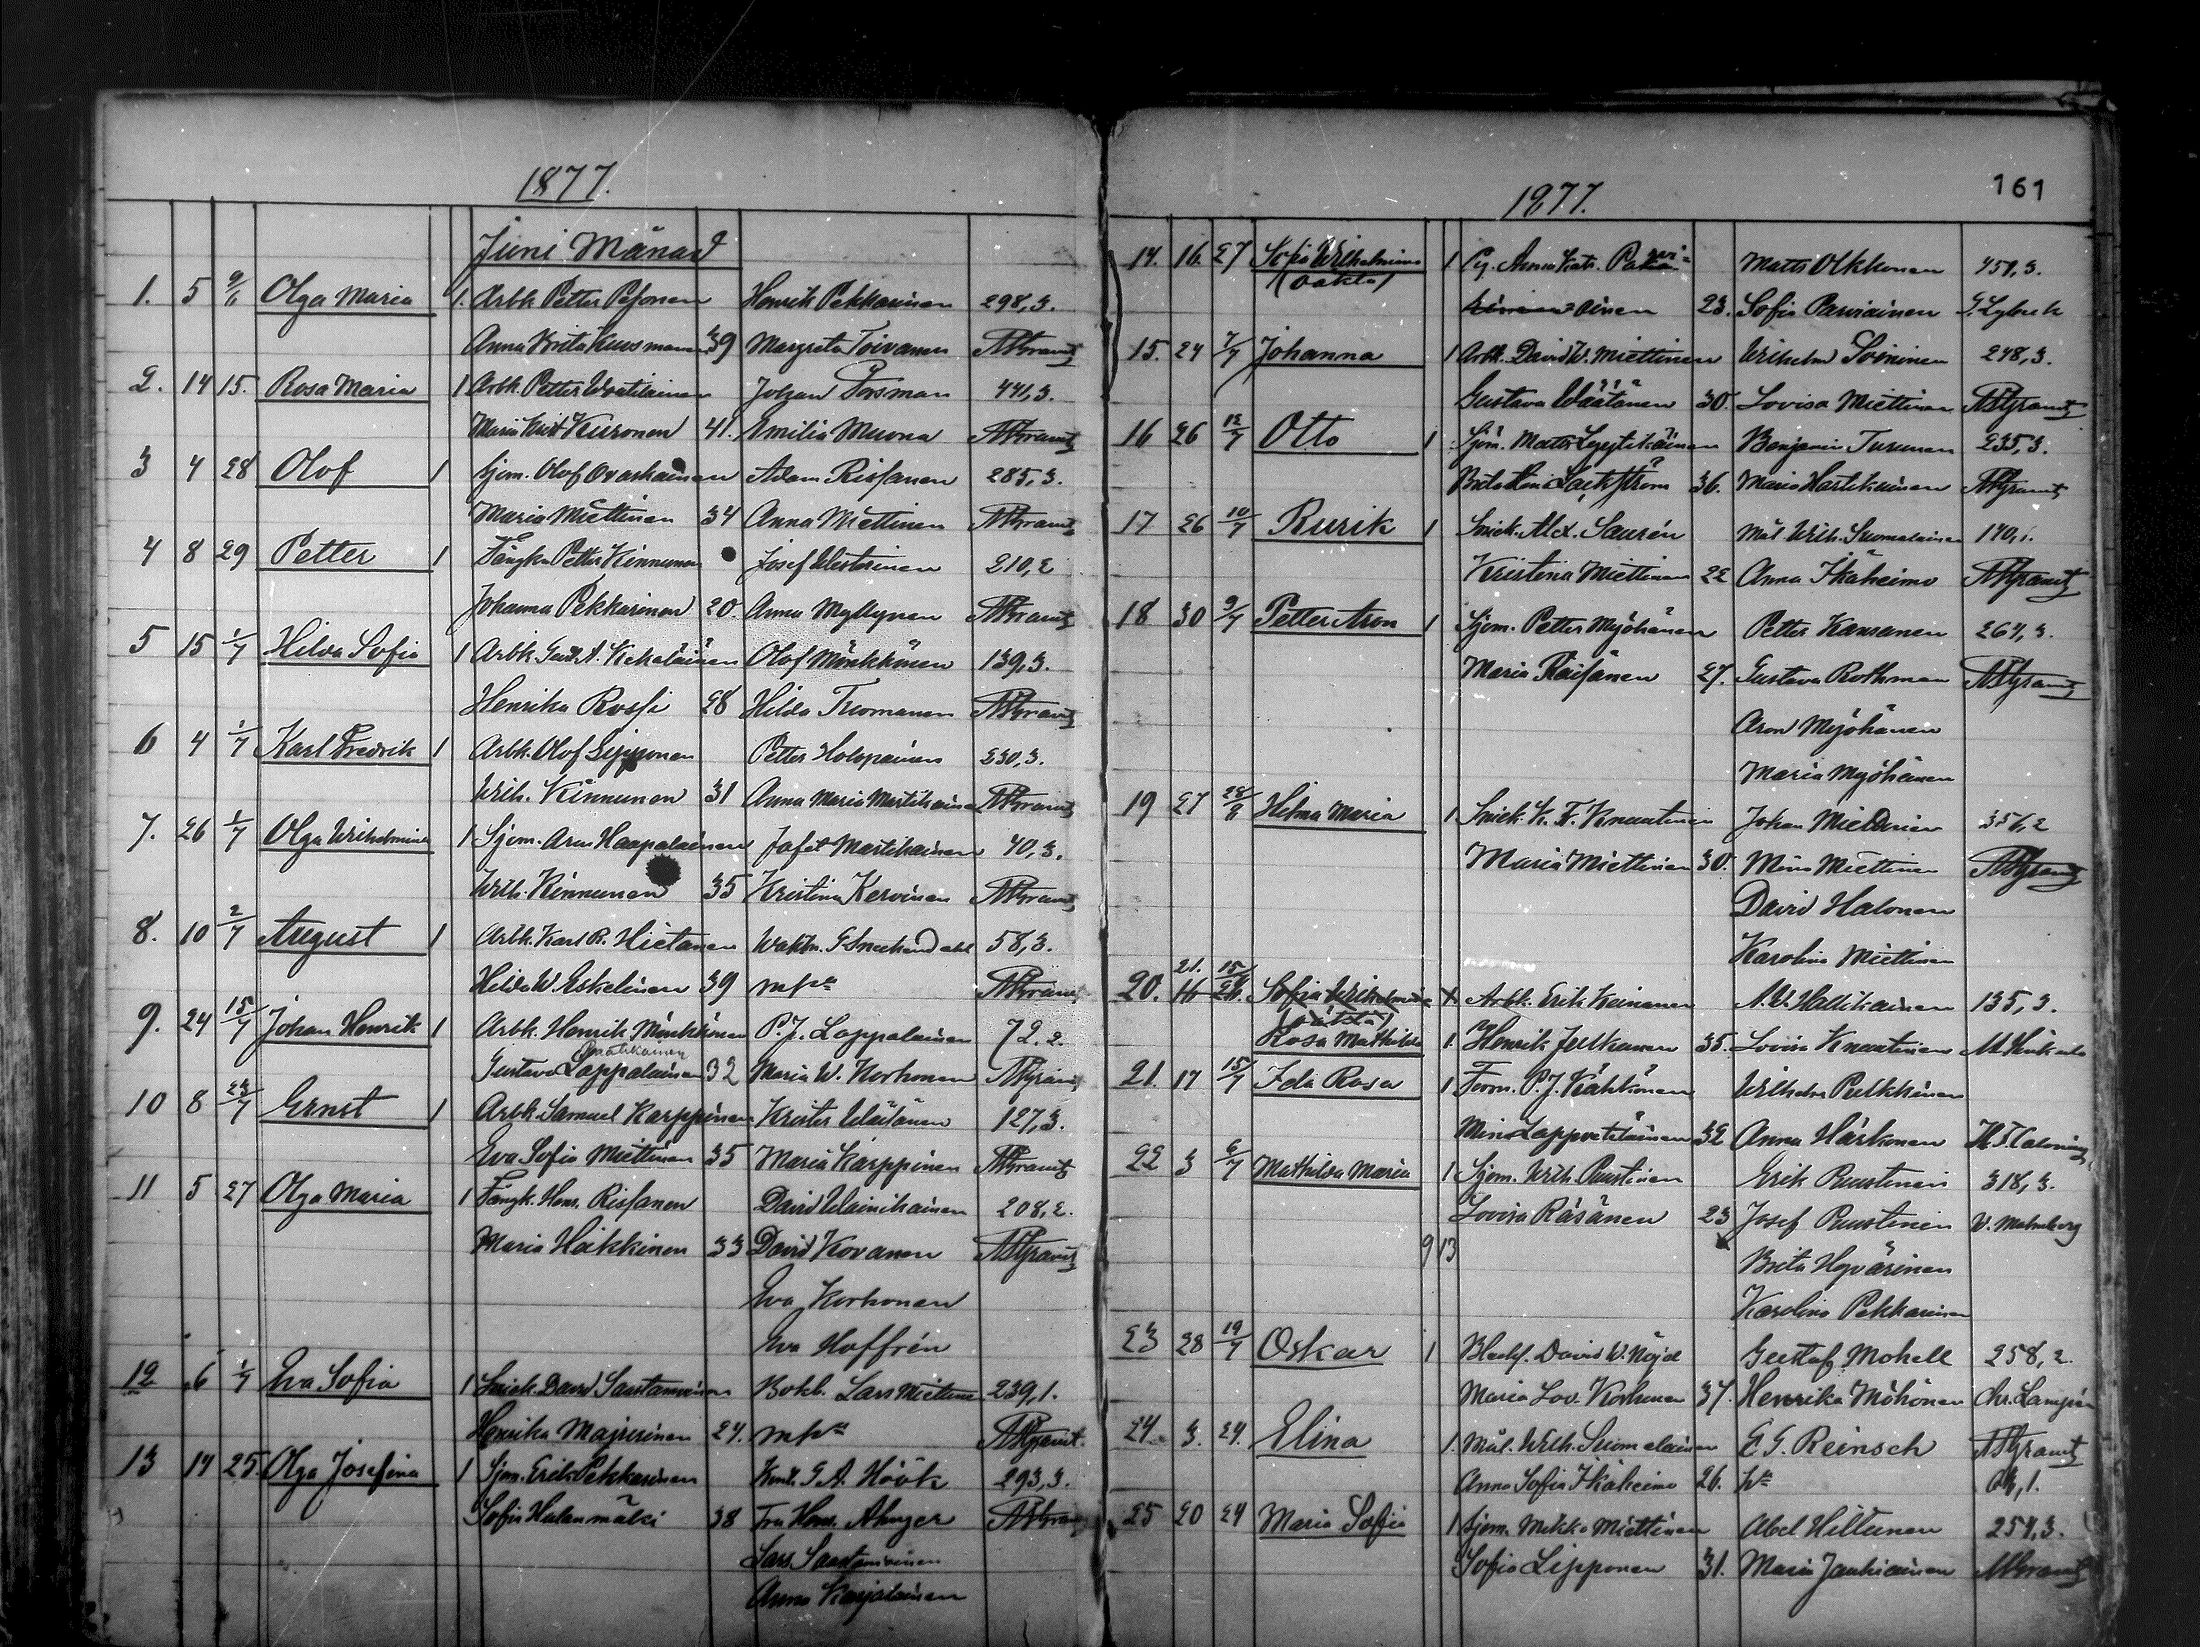 1877.
Juni Månad
1. 5 9/6 Olga Maria 1. Arbk. Petter Pesonen Henrik Pekkarinen 298,3.
Anna Brita Kuusmanen 39 Margreta Toivanen
2. 14 15. Rosa Maria 1 Arbk. Petter Woutilainen Johan Forsman 441,3.
Maria Krist Kuronen 41. Emilia Muona
3 4 28 Olof 1 Sjom. Olof Ovaskainen Adam Rissanen 285,3.
Maria Miettinen 34 Anna Miettinen
4 8 29 Petter 1 Fångkn Petter Kinnunen Josef Westerinen 210,2
Johanna Pekkarinen 20. Anna Myllynen
5 15 1/7 Hilda Sofia 1 Arbk. Gust. A. Kekäläinen Olof Mönkkönen 139,3.
Henrika Rossi 28 Hilda Tuomanen
6 4 1/7 Karl Fredrik 1 Arbk. Olof Lipponen Petter Holopainen 230,3.
Wilh. Kinnunen 31 Anna Maria Martikainen
7. 26 1/7 Olga Wilhelmina 1 Sjom. Aron Haapalainen Jafet Martikainen 40,3.
Wilh. Kinnunen 35 Kristina Kervinen
8. 10 2/7 August 1 Arbk. Karl R. Hietanen Waktm. G Smeckendahl 58,3.
Hilda W. Eskelinen 39 mpa
9. 24 15/7 Johan Henrik 1 Arbk. Henrik Mönkkönen P. J. Lappalainen 72.2.
Gustava Lappalainen 32 Maria W. Korhonen
10 8 23/7 Ernst 1 Arbk. Samuel Karppinen Krister Wäätänen 127,3.
Eva Sofia Miettinen 35 Maria Karppinen
11 5 27 Olga Maria 1 Fångk. Hen. Rissanen David Wainikainen 208,2.
Maria Häkkinen 33 David Kovanen
Eva Korhonen
Eva Hoffrén
12 6 1/7 Eva Sofia 1 Snick. David Sautamoinen Bokb. Lars Miettinen 239,1.
Henrika Majurinen 24. mpa
13 14 25 Olga Josefina 1 Sjom. Erik Pekkarinen G. A. Höök 293,3.
Sofia Halanmäki 38 Fru Ahnger
Lars Saastamoinen
Anna Karjalainen
1877.
161
14. 16. 27 Sofia Wilhelmina 1 Pig. Anna Kat. Parvi= Matts Olkkonen 451,3.
(oäkta) ainen 23. Sofia Parviainen G. Lybeck
15. 24 7/7 Johanna 1 Arbk. David W. Miettinen Wilhelm Soininen 248,3.
Gustava Wäätänen 30. Lovisa Miettinen
16 26 12/7 Otto 1 Sjöm. Matts Lyytikäinen Benjamin Turunen 235,3.
Brita 36. Maria Hartikainen
17 26 10/7 Rurik 1 Snick. Alex. Saurén Mål Wilh. Suomalainen 140,1.
Kristina Miettinen 22 Anna Ikäheimo
18 30 9/7 Petter Aron 1 Sjom. Petter Myöhänen Petter Kansanen 264,3.
Maria Räisänen 27. Gustava Rothman
Aron Myöhänen
Maria Myöhänen
19 27 28/8 Helma Maria 1 Snick. K. F. Knuutinen Johan Miettinen 356,2
Maria Miettinen 30. Mina Miettinen
David Halonen
Karolina Miettinen
21. 15/7
20. 16 26. Sofia Wilhelmina 1. Arbk. Erik Keinanen A. W. Hallikainen 135,3.
(oäkta)
Rosa Mathilda 1. Henrik Julkunen 35. Lovisa Knuutinen
21. 17 15/7 Ida Rosa 1 Form. P. J. Kähkönen Wilhelm Pulkkinen
Mina Lappeteläinen 32 Anna Härkonen
22 3 6/7 Mathilda Maria 1 Sjom. Wilh. Puustinen Erik Puustinen 318,3.
Lovisa Räsänen 23 Josef Puustinen W. Malmberg
9 13 Brita Hyvärinen
Karolina Pekkarinen
23 28 19/7 Oskar 1 Blecksl. David W. Nöjd Gustaf Mokell 258,2.
Maria Lov. Korhonen 37. Henrika Möhönen Chr. Lampén
24 3. 24. Elina 1. Mål. Wilh. Suomalainen E. G. Reinsch
Anna Sofia Ikäheimo 26. ha
25 20 24 Maria Sofia 1 Sjom. Mikko Miettinen Abel Hiltunen 254,3.
Sofia Lipponen 31. Maria Jauhiainen